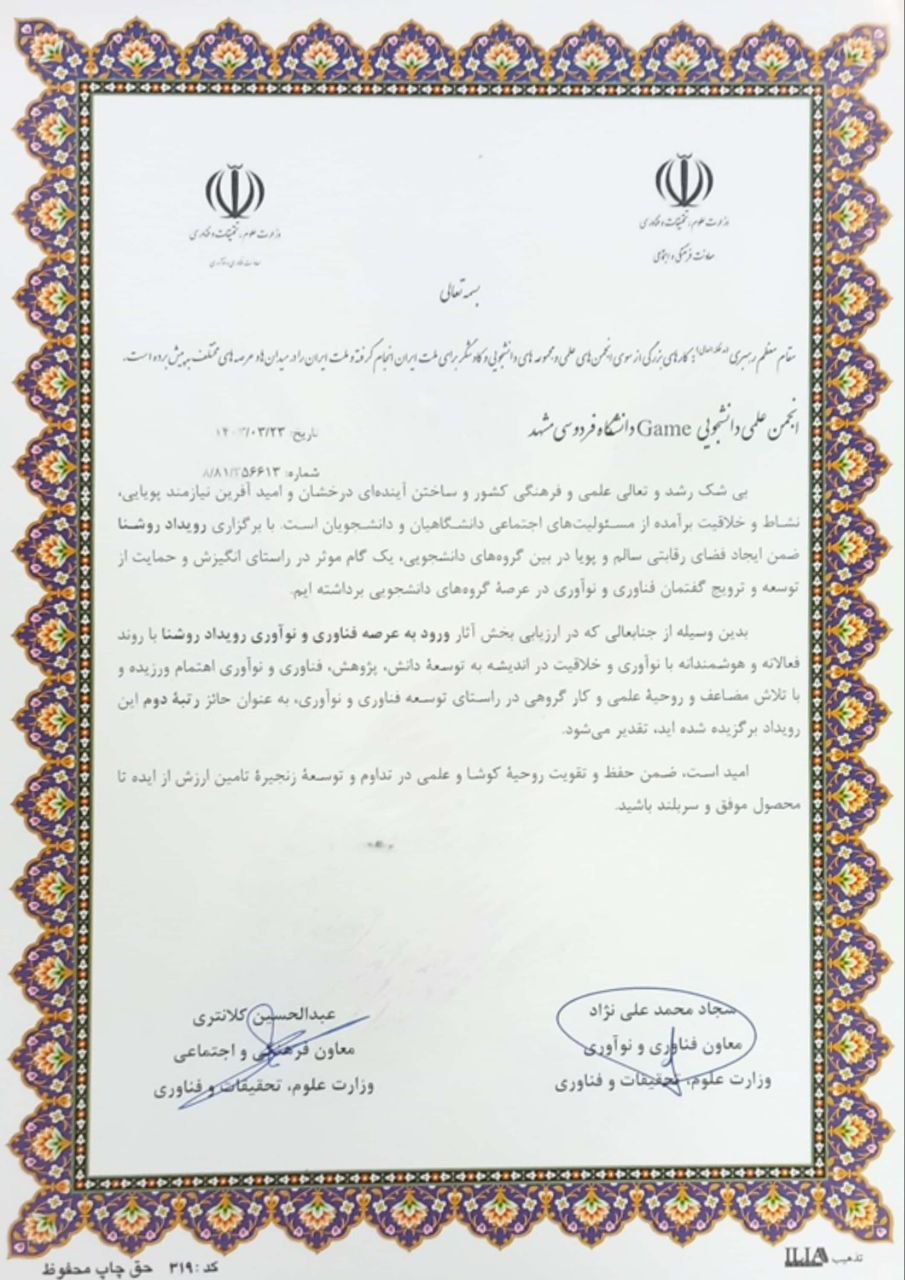 وزارت علوم، تحقیقات و فناوری
معاونت فرهنگی و اجتماعی
وزارت علوم، تحقیقات و فناوری
معاونت فناوری و نوآوری
بسمه تعالی
مقام معظم رهبری (مدظله العالی): کارهای بزرگی از سوی انجمن‌های علمی و مجموعه‌های دانشجویی و کاوشگر برای ملت ایران انجام گرفته و ملت ایران را در میدان‌ها و عرصه‌های مختلف به پیش برده است.
انجمن علمی دانشجویی Game دانشگاه فردوسی مشهد
تاریخ: ۱۴۰۳/۰۳/۲۳
شماره:
بی شک رشد و تعالی علمی و فرهنگی کشور و ساختن آینده‌ای درخشان و امید آفرین نیازمند پویایی،
نشاط و خلاقیت برآمده از مسئولیت‌های اجتماعی دانشگاهیان و دانشجویان است. با برگزاری رویداد روشنا
ضمن ایجاد فضای رقابتی سالم و پویا در بین گروه‌های دانشجویی، یک گام موثر در راستای انگیزش و حمایت از
توسعه و ترویج گفتمان فناوری و نوآوری در عرصهٔ گروه‌های دانشجویی برداشته ایم.
بدین وسیله از جنابعالی که در ارزیابی بخش آثار ورود به عرصه فناوری و نوآوری رویداد روشنا با روند
فعالانه و هوشمندانه با نوآوری و خلاقیت در اندیشه به توسعهٔ دانش، پژوهش، فناوری و نوآوری اهتمام ورزیده و
با تلاش مضاعف و روحیهٔ علمی و کار گروهی در راستای توسعه فناوری و نوآوری، به عنوان حائز رتبهٔ دوم این
رویداد برگزیده شده اید، تقدیر می‌شود.
امید است، ضمن حفظ و تقویت روحیهٔ کوشا و علمی در تداوم و توسعهٔ زنجیرهٔ تامین ارزش از ایده تا
محصول موفق و سربلند باشید.
سجاد محمد علی نژاد
معاون فناوری و نوآوری
وزارت علوم، تحقیقات و فناوری
عبدالحسین کلانتری
معاون فرهنگی و اجتماعی
وزارت علوم، تحقیقات و فناوری
تذهیب ILIA
کد: ۳۱۹ حق چاپ محفوظ